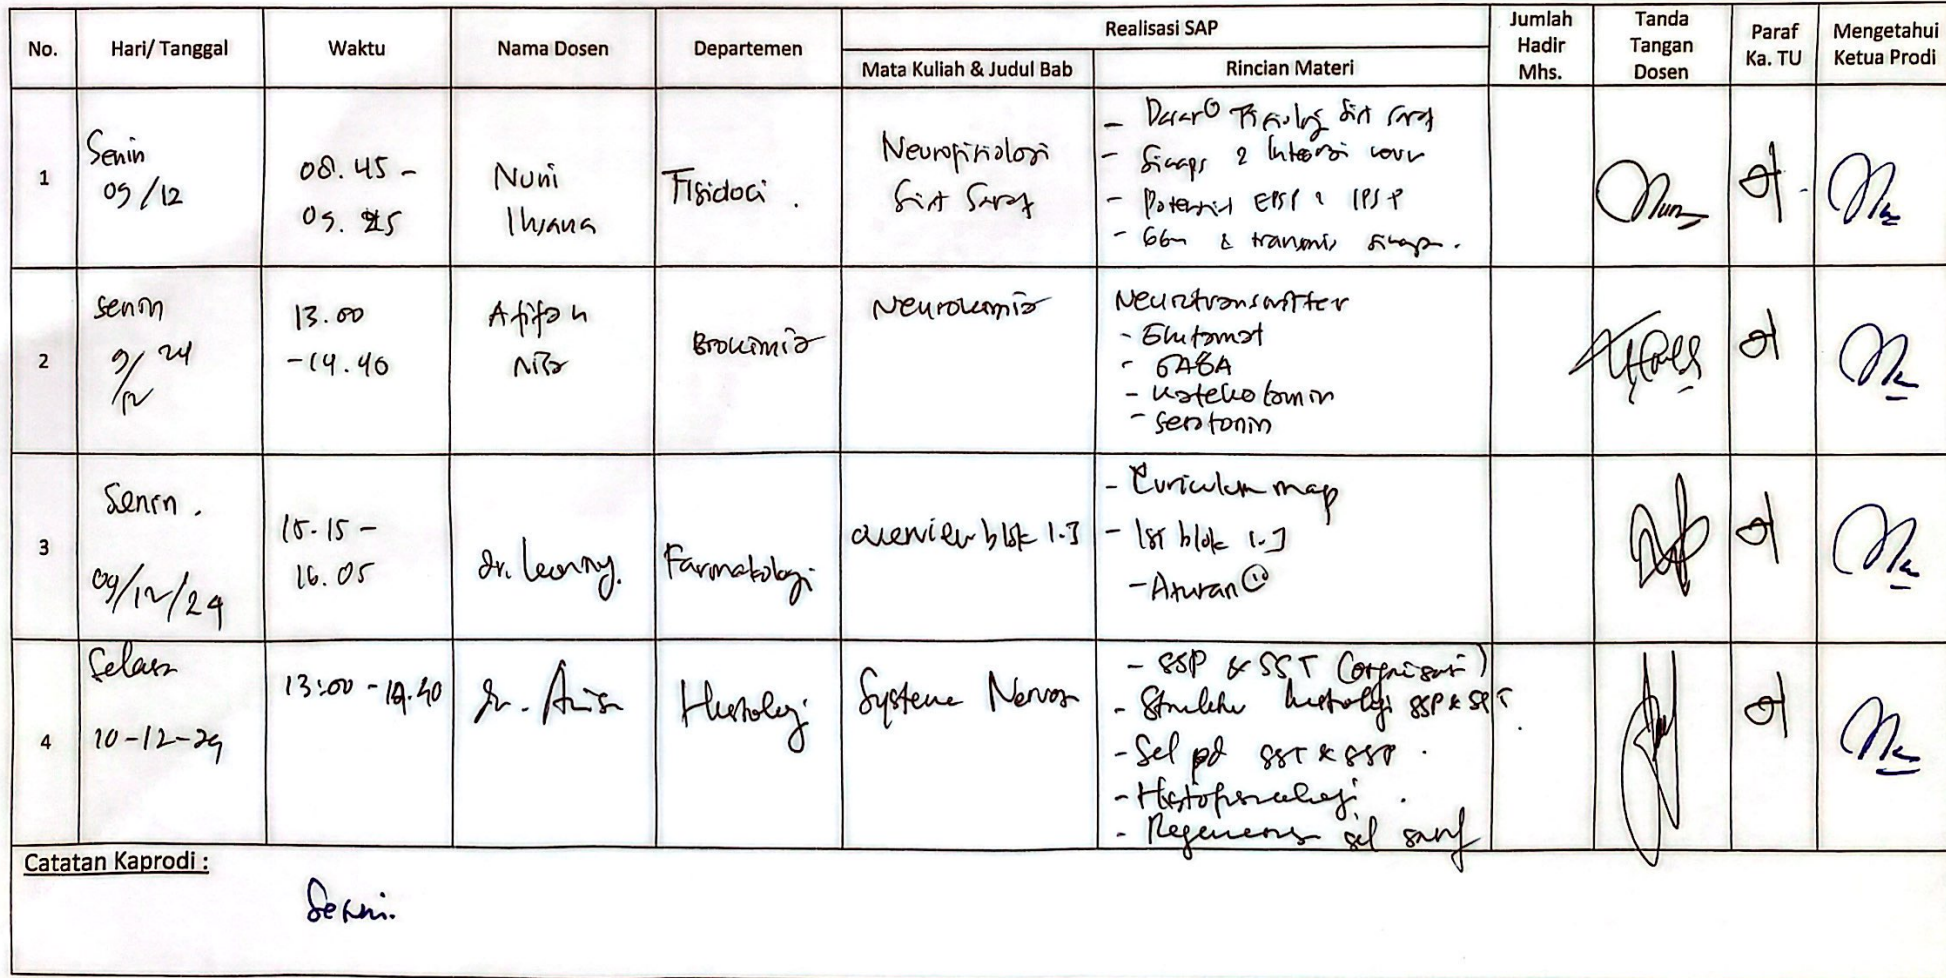 No. Hari/ Tanggal Waktu Nama Dosen Departemen Realisasi SAP Jumlah Hadir Mhs. Tanda Tangan Dosen Paraf Ka. TU Mengetahui Ketua Prodi
Mata Kuliah & Judul Bab Rincian Materi
1
Senin
09/12
08.45 -
09.25
Nuni
Ihsana
Neurofisiologi
Sist Saraf
- Dasar Fisiolog Sist Saraf
- Sinaps & Interaksi
- Potensial EPSP & IPSP
- & transmisi sinaps.
2
Senin
9/12 24
13.00
-14.40
Afifah
Biokimia
Neurokimia
Neurotransmitter
- Glutamat
- GABA
- Katekolamin
- Serotonin
3
Senin.
09/12/24
15.15 -
16.05
dr. Leonny.
Farmakologi
overview blok 1.3
- Curiculum map
- Isi blok 1.3
- Aturan
4
Selasa
10-12-24
13:00 - 14.40
dr. Anisa
Histologi
Systema Nervosa
- SSP & SST (organisasi)
- Struktur histologi SSP & SST
- Sel pd SST & SSP.
- Histofisiologi.
- Regenerasi sel saraf
Catatan Kaprodi :